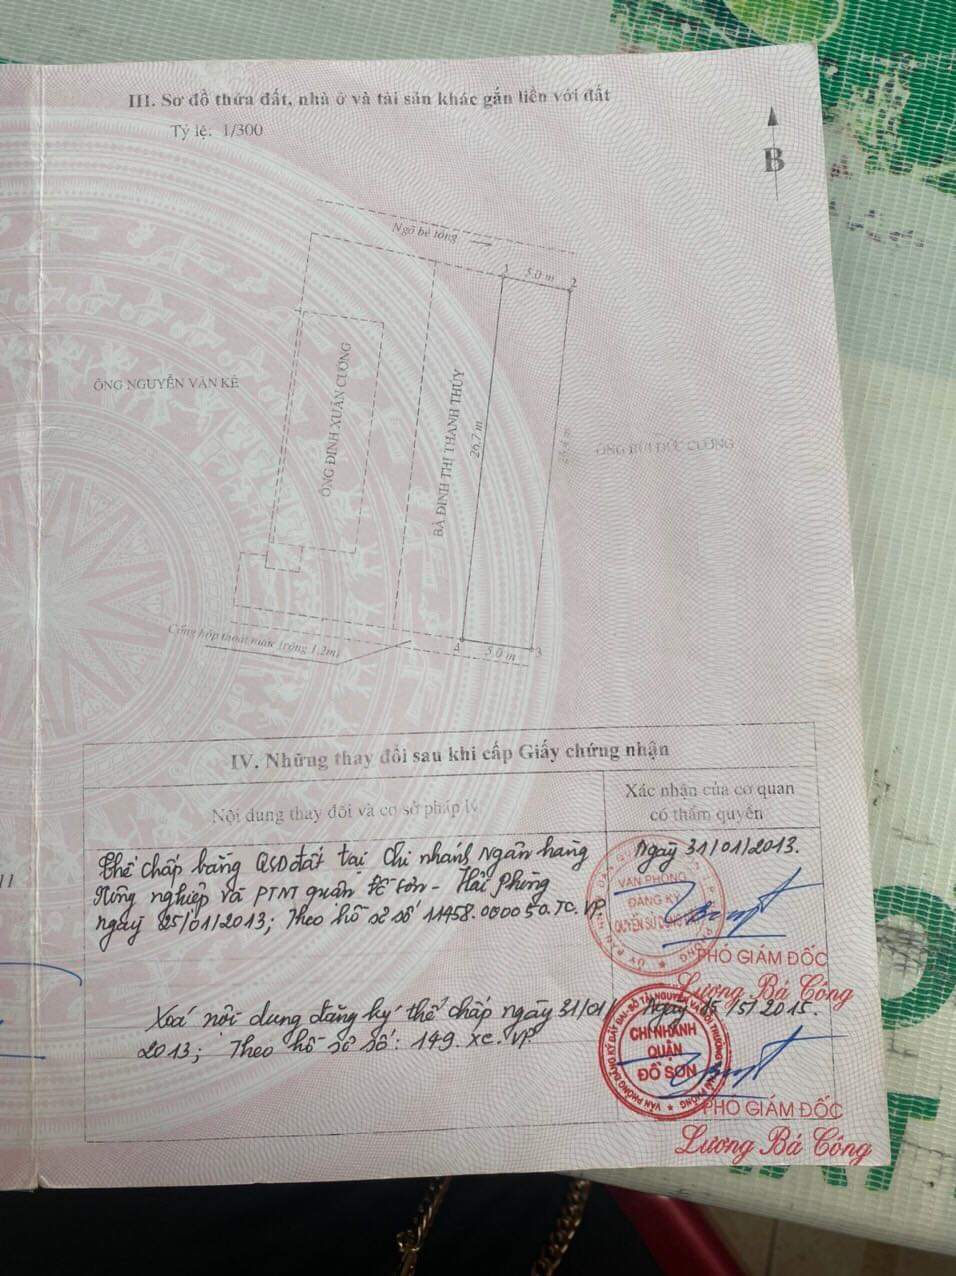 III. Sơ đồ thửa đất, nhà ở và tài sản khác gắn liền với đất
Tỷ lệ: 1/300
B
Ngõ bê tông
1
5.0 m
2
ÔNG NGUYỄN VĂN KÊ
ÔNG ĐINH XUÂN CƯƠNG
BÀ ĐINH THỊ THANH THỦY
26.7 m
ÔNG BÙI ĐỨC CƯƠNG
Cống hộp thoát nước (rộng 1,2m)
4
5.0 m
3
IV. Những thay đổi sau khi cấp Giấy chứng nhận
Nội dung thay đổi và cơ sở pháp lý
Xác nhận của cơ quan
có thẩm quyền
Thế chấp bằng QSD đất tại Chi nhánh Ngân hàng
Nông nghiệp và PTNT quận Đồ Sơn - Hải Phòng
ngày 25/01/2013; Theo hồ sơ số 11458.000050.TC.VP.
Ngày 31/01/2013.
VĂN PHÒNG
ĐĂNG KÝ
QUYỀN SỬ DỤNG ĐẤT
PHÓ GIÁM ĐỐC
Lương Bá Công
Xoá nội dung đăng ký thế chấp ngày 31/01/
2013; Theo hồ sơ số: 149.XC.VP
Ngày 15/5/2015.
CHI NHÁNH
QUẬN
ĐỒ SƠN
PHÓ GIÁM ĐỐC
Lương Bá Công